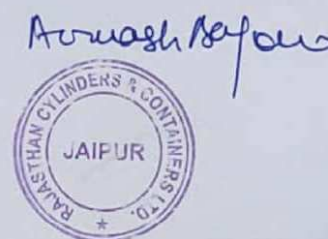 Avinash Bajaj
RAJASTHAN CYLINDERS & CONTAINERS LTD.
JAIPUR
★